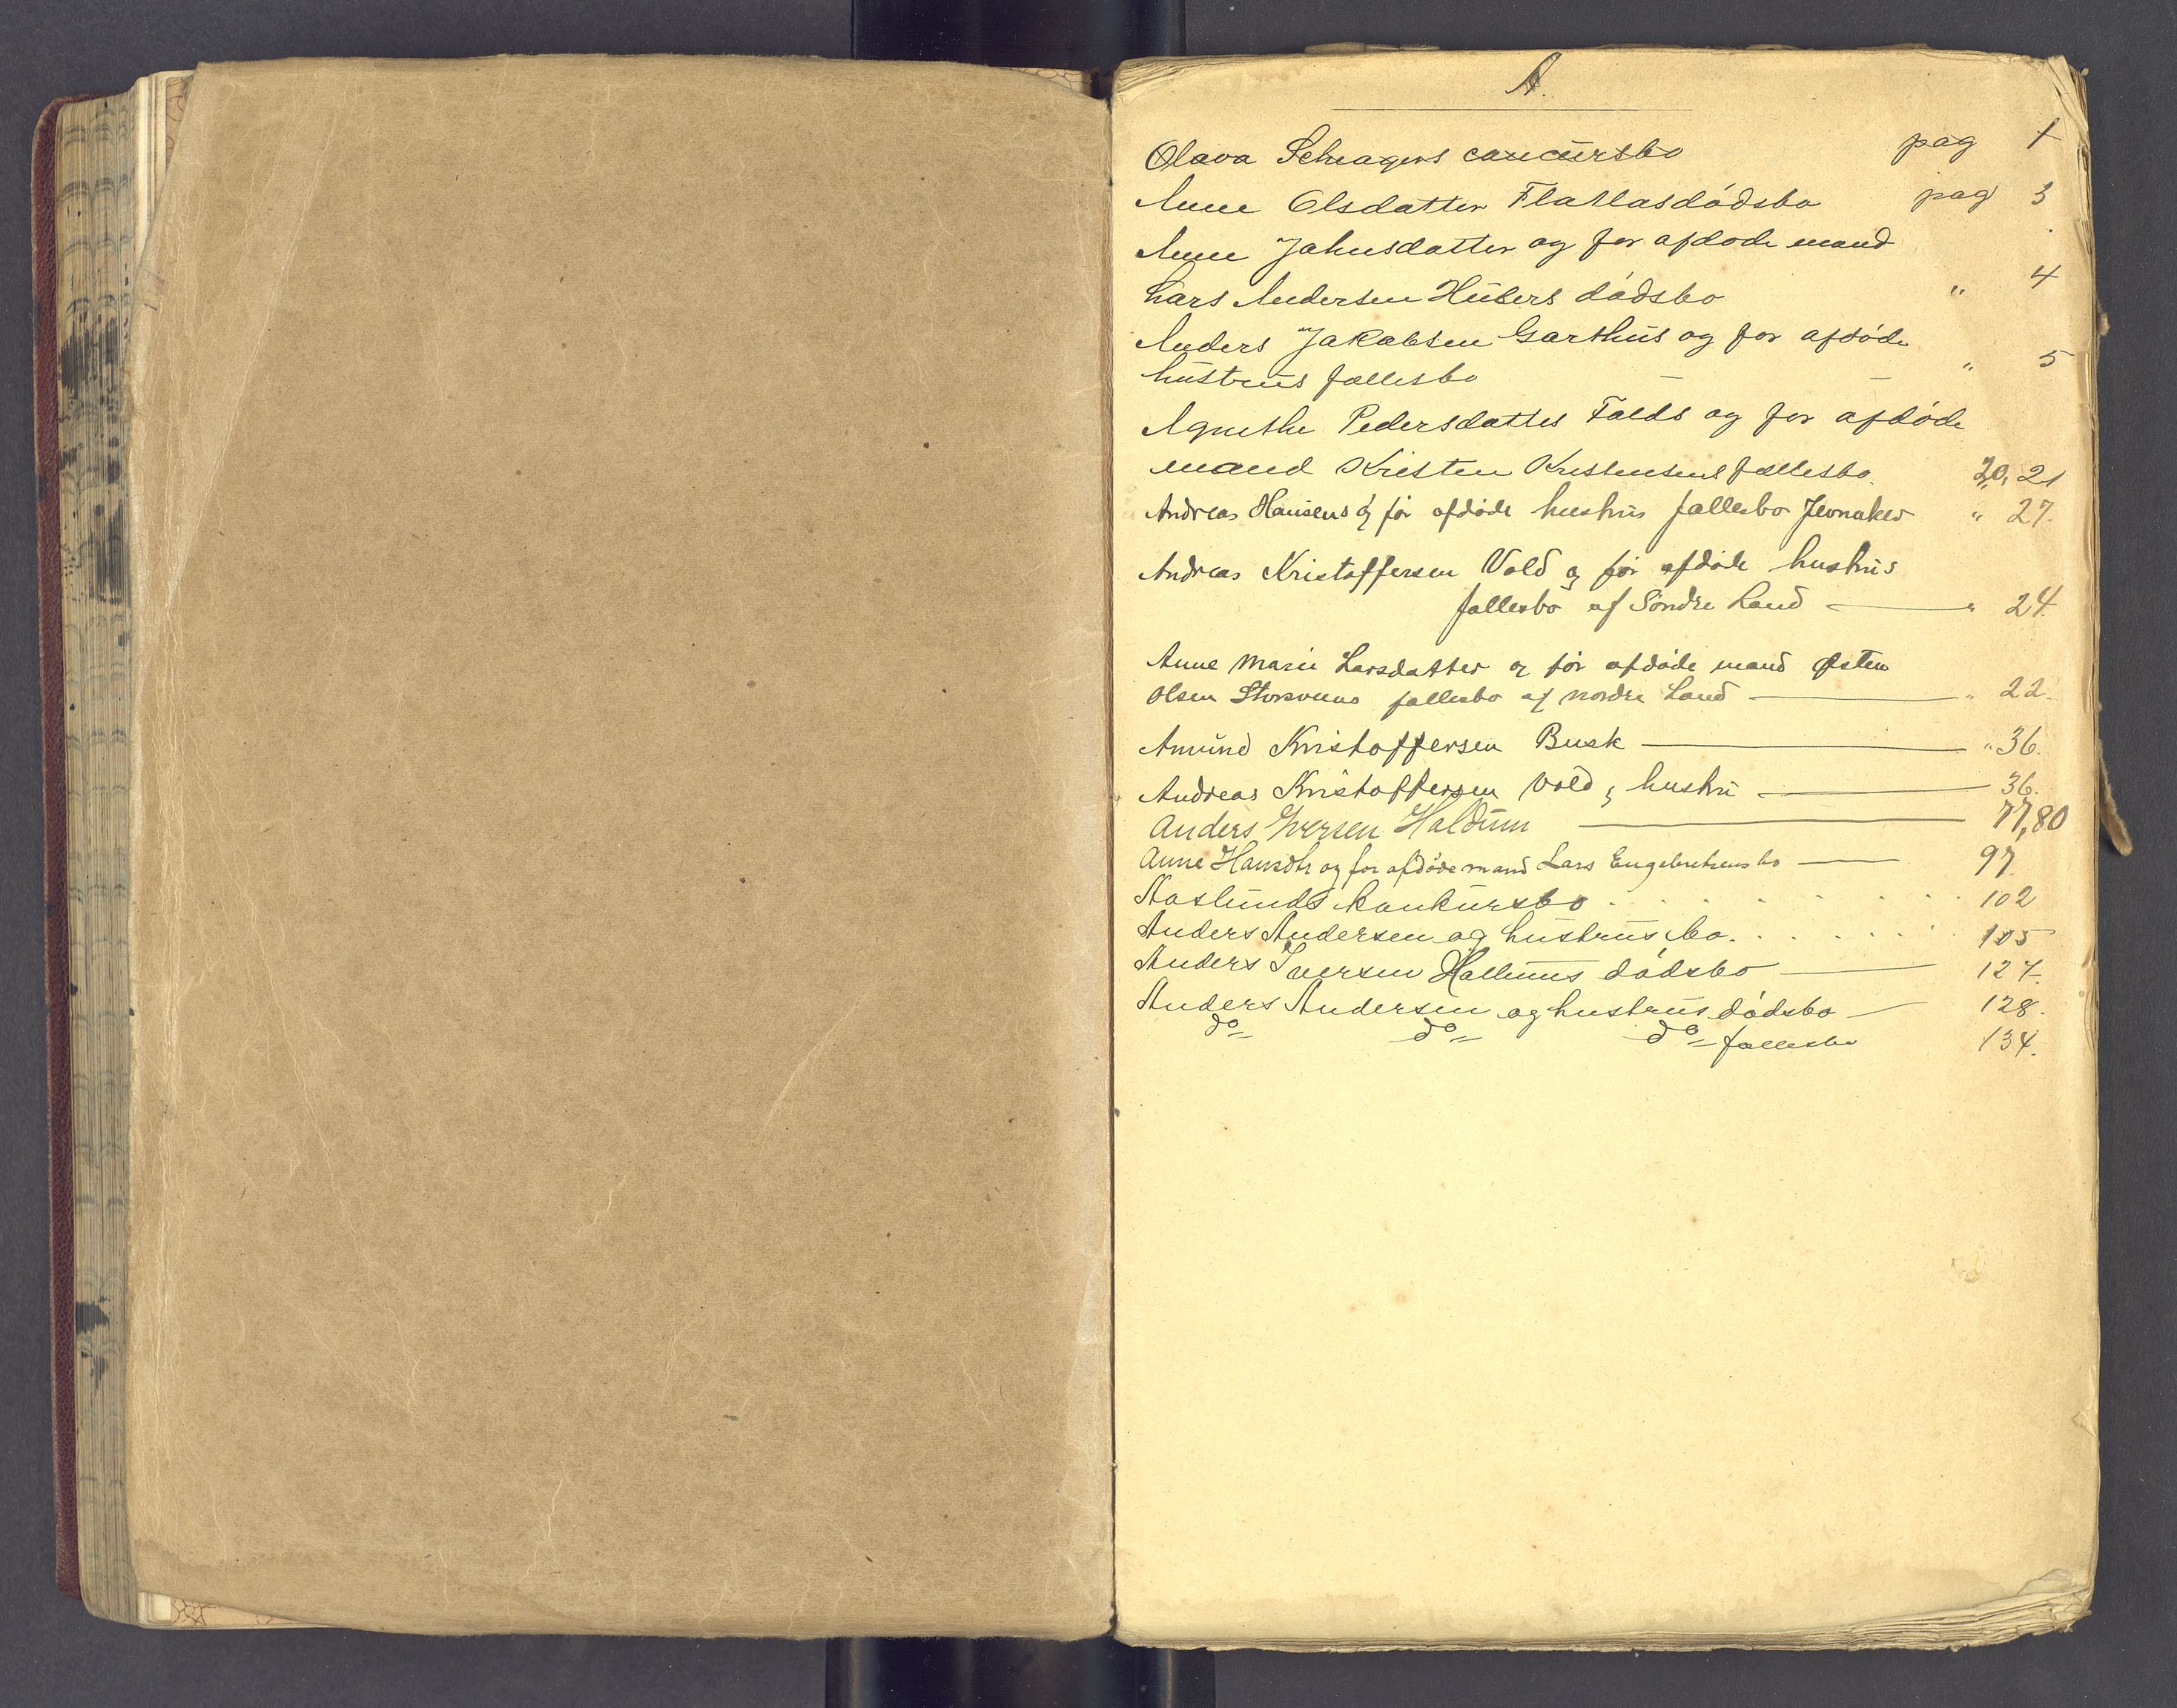 A.
Olava Schragers concursbo pag 1
Anne Olsdatter Flatlasdødsbo pag 3
Anne Johnsdatter og før afdøde mand
Lars Andersen Hubers dødsbo " 4
Anders Jakobsen Garthus og før afdøde
hustrus fællesbo " 5
Agnethe Pedersdatter Falds og før afdøde
mand Kristen Kristensens fællesbo. 20, 21
Andreas Hansens og før afdøde hustrus fællesbo Jevnaker " 27.
Andreas Kristoffersen Vold og før afdøde hustrus
fællesbo af Søndre Land — " 24.
Anne Marie Larsdatter og før afdøde mand Østen
Olsen Storsveens fællesbo af Nordre Land — " 22.
Amund Kristoffersen Busk — " 36.
Andreas Kristoffersen Vold og hustru — 36.
Anders Iversen Haldum — 77, 80
Anne Hansdtr og før afdøde mand Lars Engebretsens bo — 97
Aaslunds konkursbo . . . . . . . 102
Anders Andersen og hustrus bo. . . . . . . 105
Anders Iversen Hallums dødsbo — 127.
Anders Andersen og hustrus dødsbo — 128.
do do do fællesbo 134.